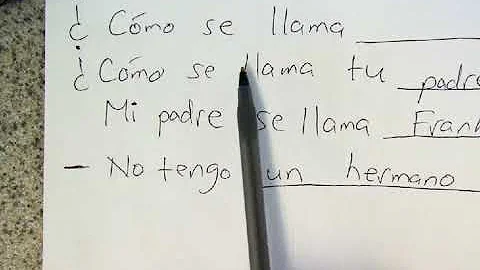 ¿ Cómo se llama
¿ Cómo se llama tu padre
Mi padre se llama Frank
- No tengo un hermano